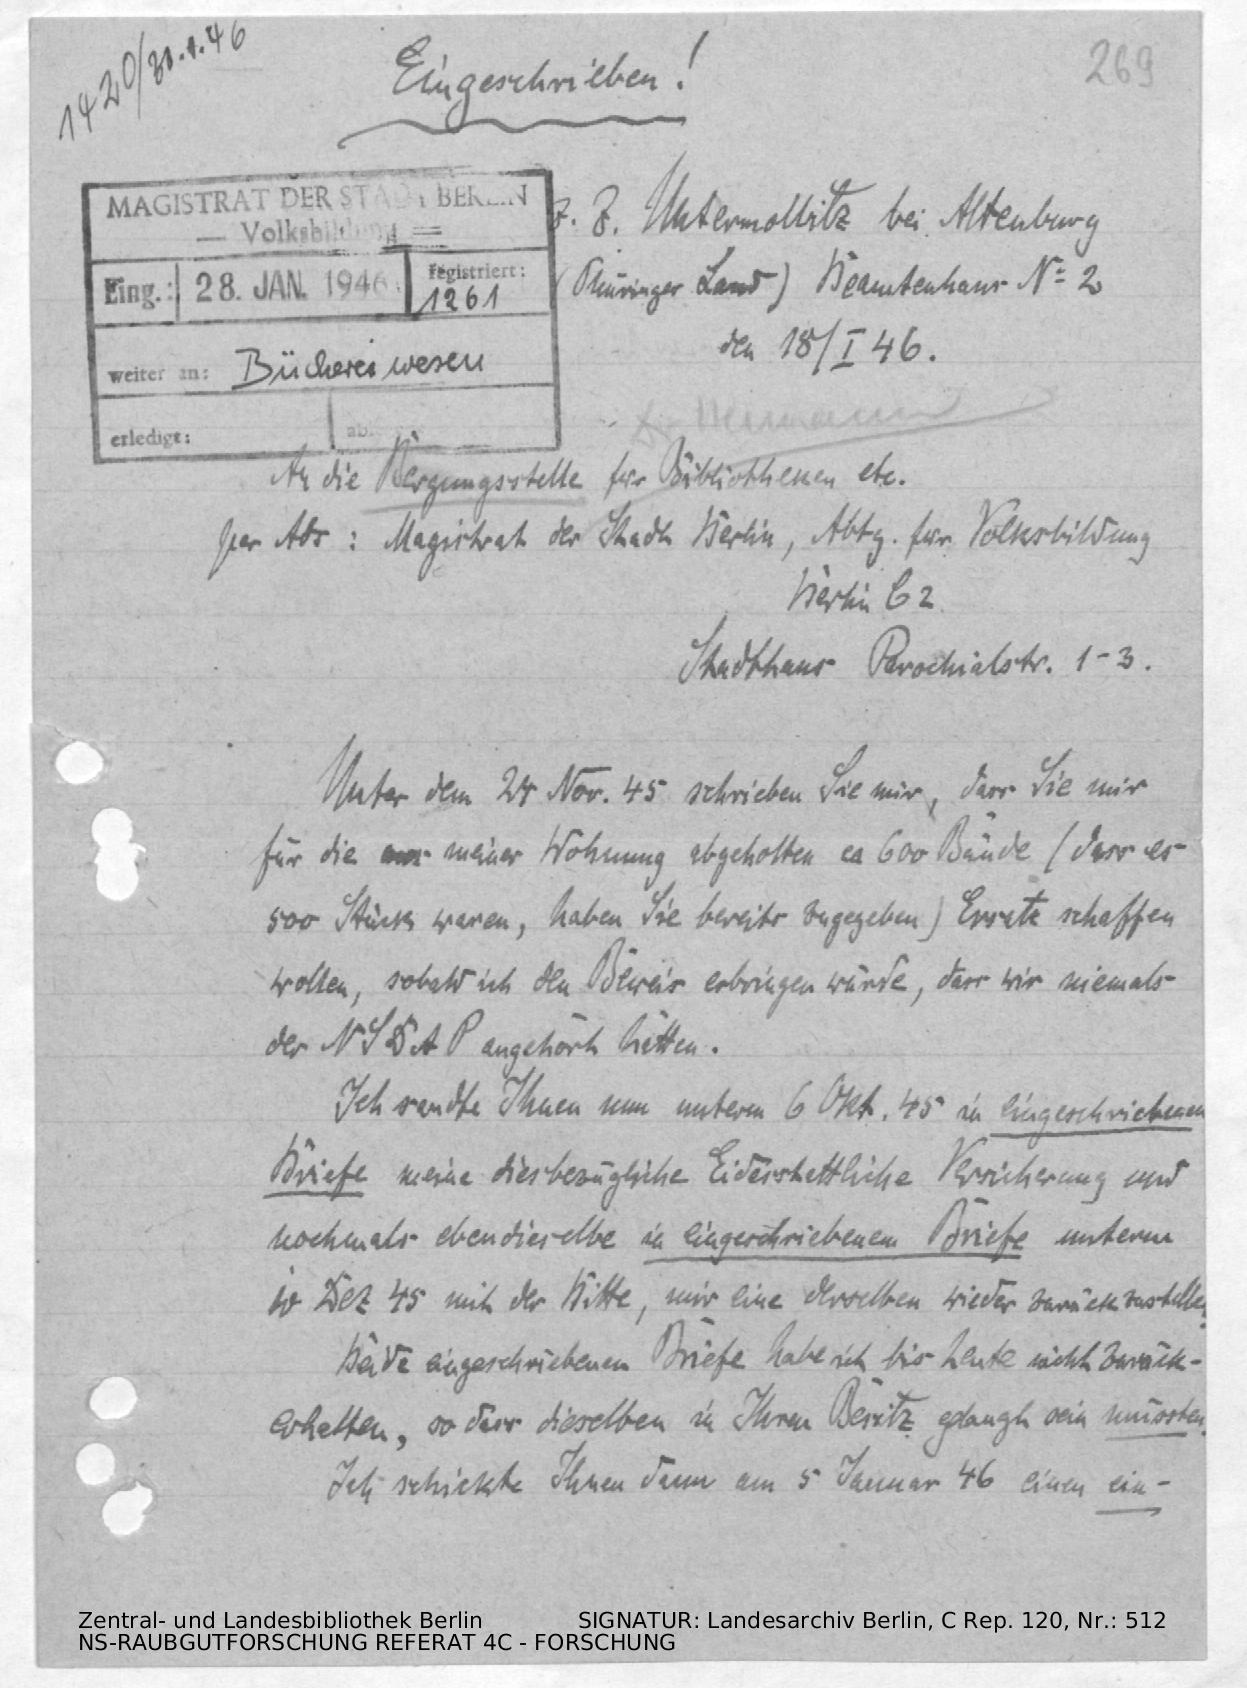 1420/30.1.46
269
Eingeschrieben!
MAGISTRAT DER STADT BERLIN
— Volksbildung —
Eing.: 28. JAN. 1946 registriert:
1261
weiter an: Büchereiwesen
erledigt:
z. Z. Untermolbitz bei Altenburg
(Thüringer Land) Beamtenhaus Nº 2
den 18/I 46.
An die Bergungsstelle für Bibliotheken etc.
per Adr: Magistrat der Stadt Berlin, Abtg. für Volksbildung
Berlin C 2
Stadthaus Parochialstr. 1-3.
Unter dem 24 Nov. 45 schrieben Sie mir, dass Sie mir
für die aus meiner Wohnung abgeholten ca 600 Bände (dass es
500 Stück waren, haben Sie bereits zugegeben) Ersatz schaffen
wollen, sobald ich den Beweis erbringen würde, dass wir niemals
der NSDAP angehört hätten.
Ich sandte Ihnen nun unterm 6 Okt. 45 in eingeschriebenen
Briefe meine diesbezügliche Eidesstattliche Versicherung und
nochmals ebendieselbe in eingeschriebenem Briefe unterm
Dez 45 mit der Bitte, mir eine derselben wieder zurückzustellen.
Beide eingeschriebenen Briefe habe ich bis heute nicht zurück-
erhalten, so dass dieselben in Ihren Besitz gelangt sein mussten.
Ich schickte Ihnen dann am 5 Januar 46 einen ein-
Zentral- und Landesbibliothek Berlin SIGNATUR: Landesarchiv Berlin, C Rep. 120, Nr.: 512
NS-RAUBGUTFORSCHUNG REFERAT 4C - FORSCHUNG